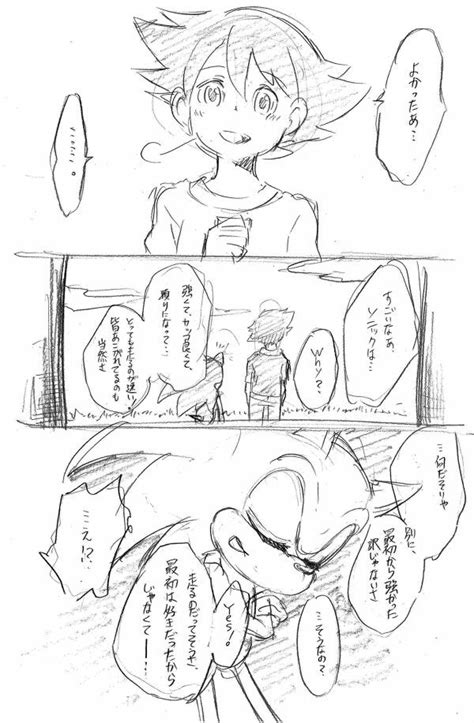 よかったぁ…
……。
すごいなぁ、
ソニックは…
Why?
強くて、カッコ良くて、
頼りになって…
とっても走るのが速い!
皆あこがれてるのも
当然さ
…何だそりゃ
別に、
最初から強かった
訳じゃないさ
…そうなの?
Yes!
走るのだってそうさ、
最初は好きだったから
じゃなくて——!
ええ!?